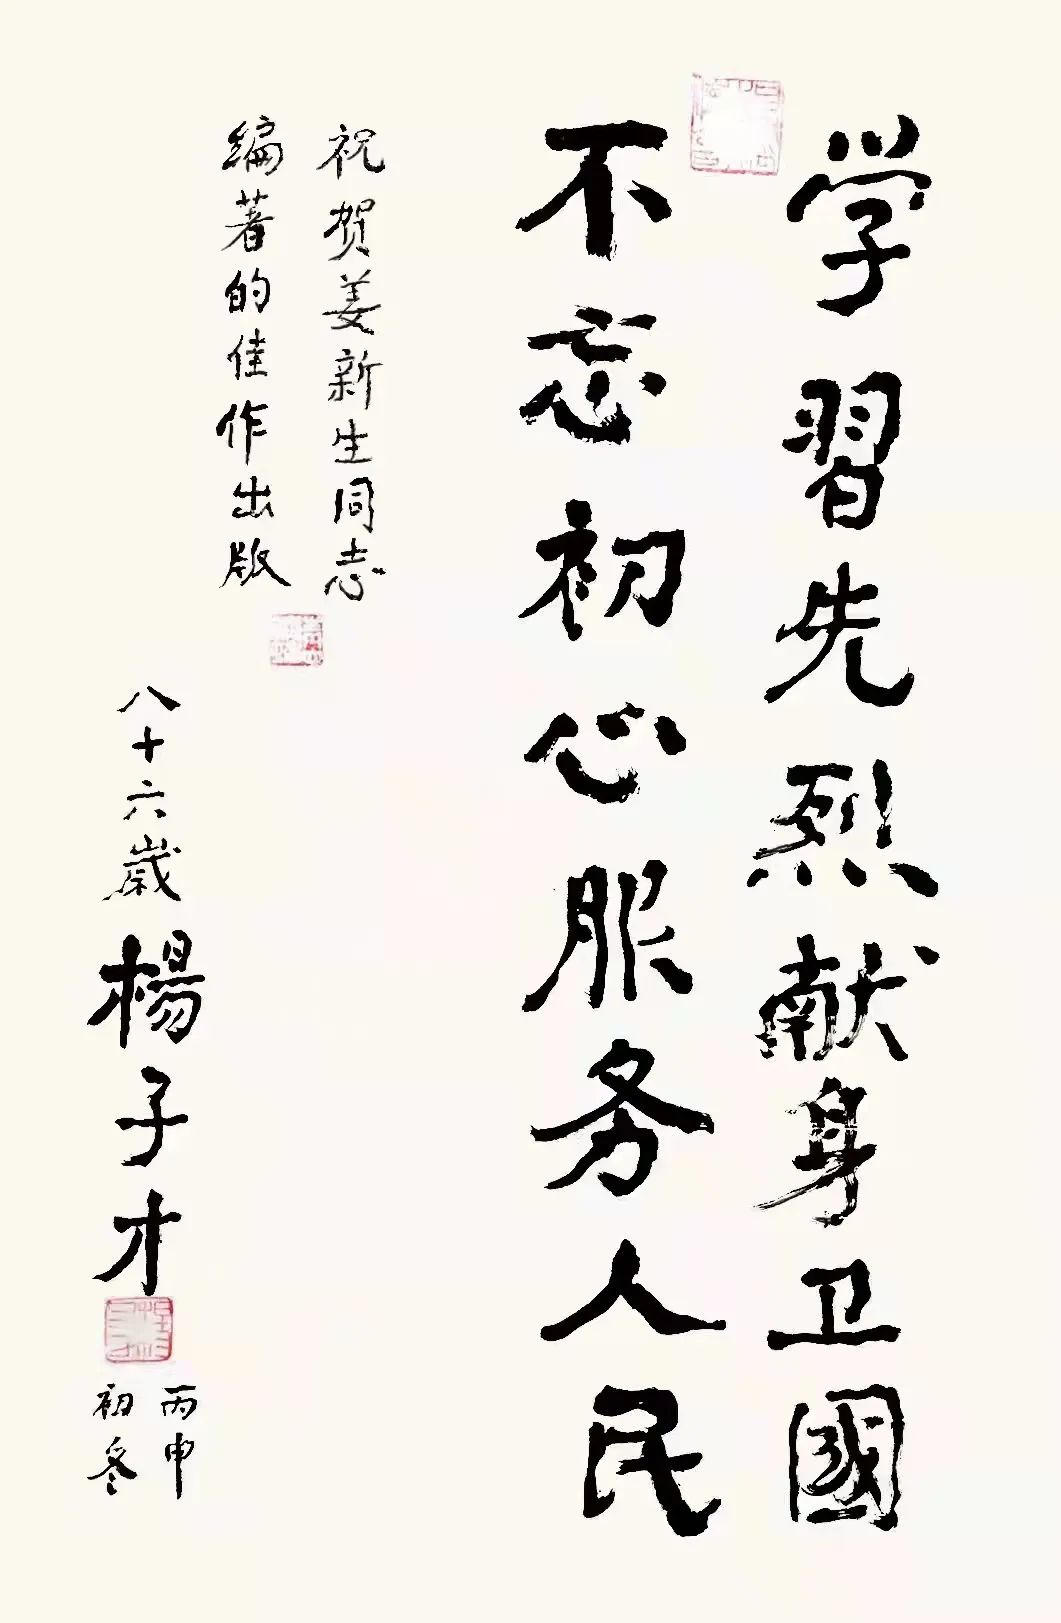 学習先烈献身卫國
不忘初心服务人民
祝贺姜新生同志
编著的佳作出版
八十六歳楊子才
丙申
初冬